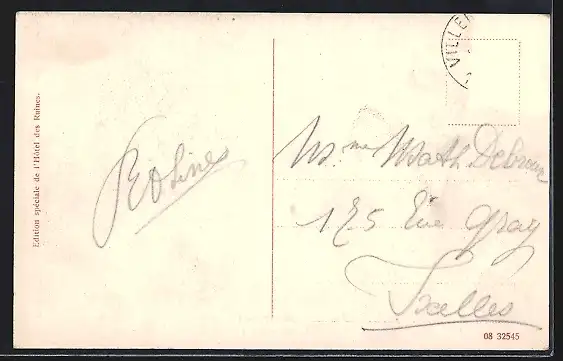 Edition spéciale de l'Hôtel des Ruines.
VILLE
Mme Math Debroux
175 Rue Gray
Ixelles
08 32545